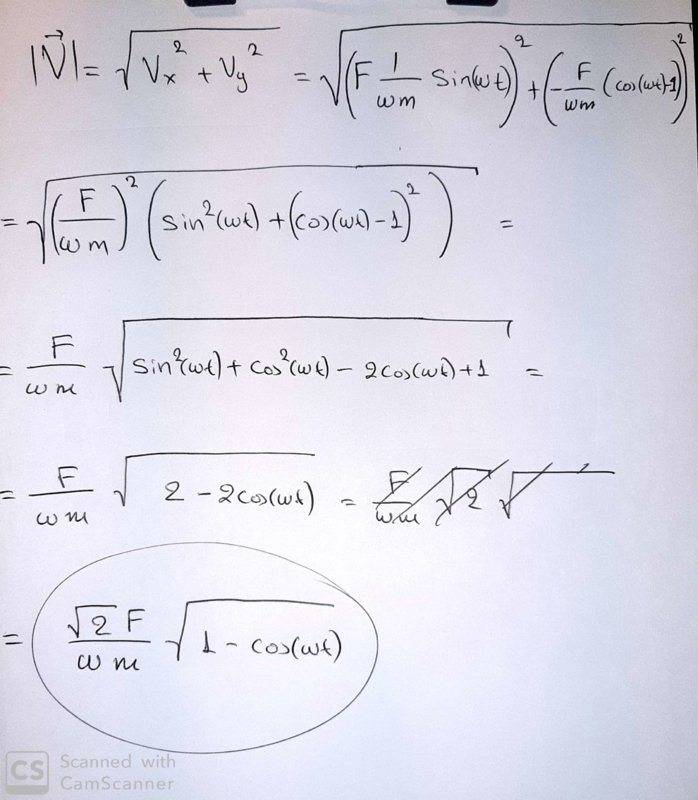 |V⃗| = √(Vx² + Vy²) = √((F 1/ωm sin(ωt))² + (-F/ωm (cos(ωt)-1))²)
= √((F/ωm)² (sin²(ωt) + (cos(ωt) - 1)²)) =
= F/ωm √(sin²(ωt) + cos²(ωt) - 2cos(ωt) + 1) =
= F/ωm √(2 - 2cos(ωt)) = F/ωm √2 √
= √2 F/ωm √(1 - cos(ωt))
CS Scanned with
CamScanner